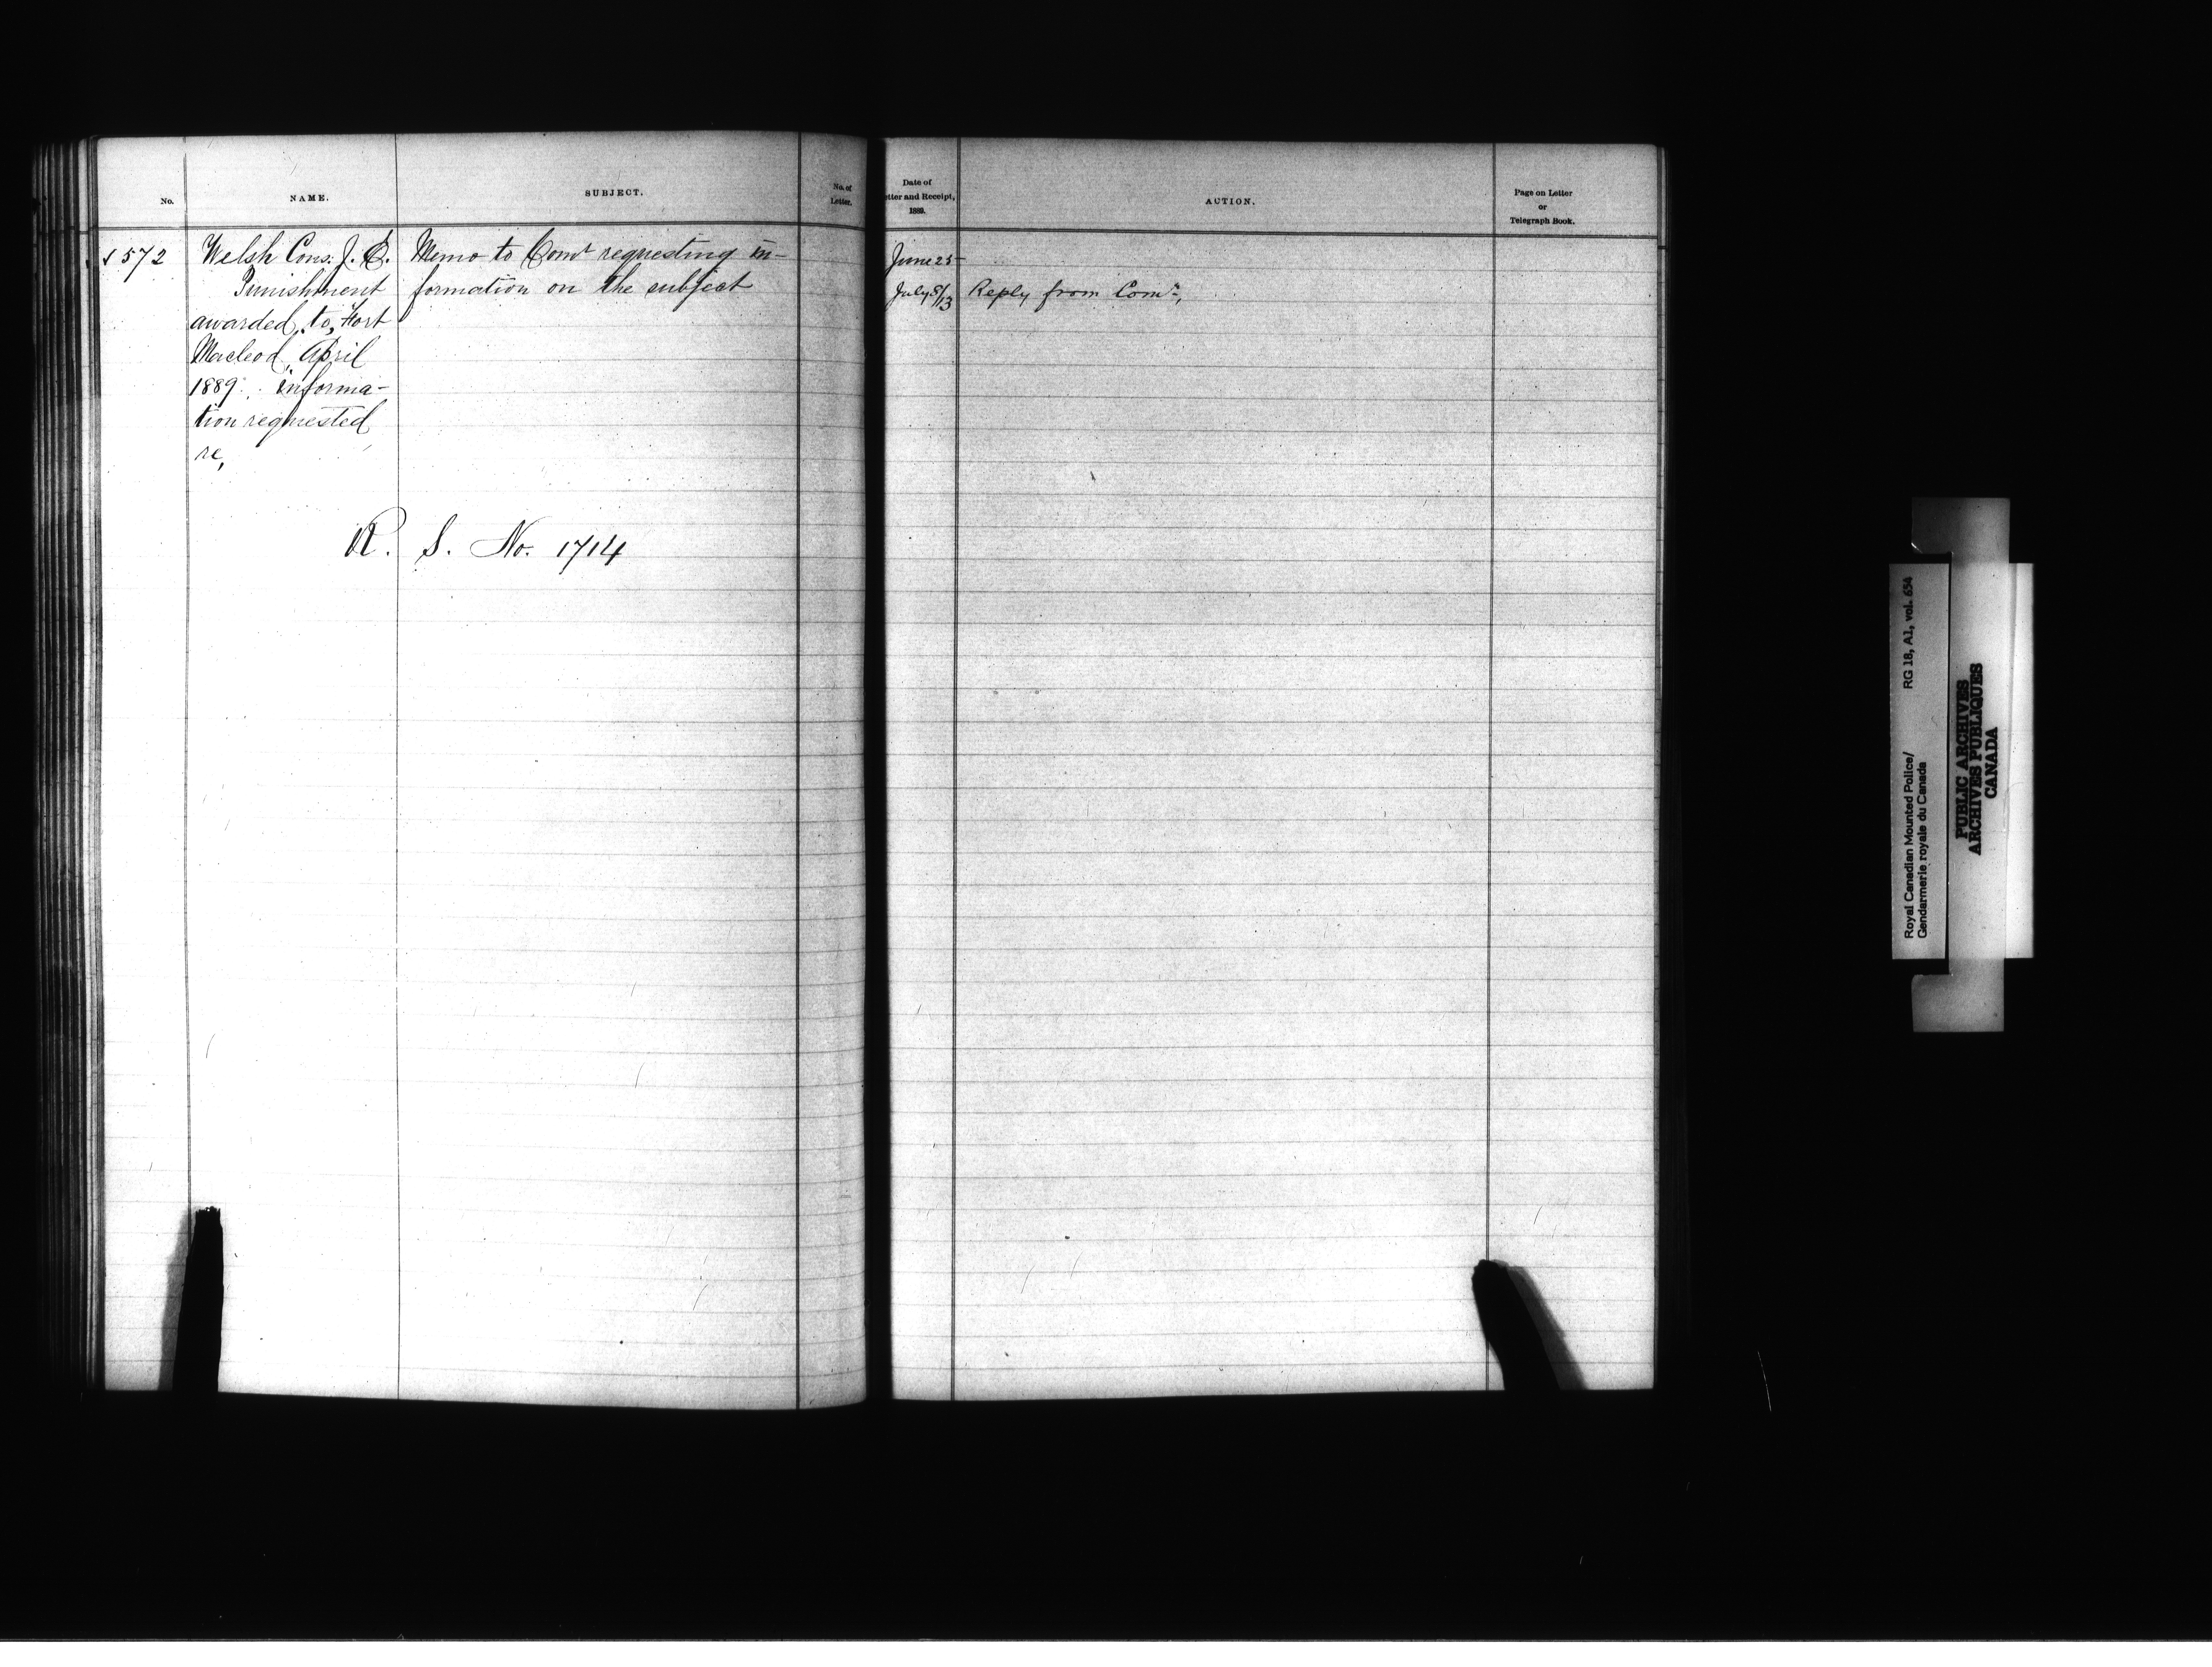 No.
NAME.
SUBJECT.
No. of
Letter.
Date of
tter and Receipt,
1889.
ACTION.
Page on Letter
or
Telegraph Book.
572
Welsh Cons. J. E.
Punishment
awarded to, Fort
Macleod April
1889. informa-
tion requested
re,
Memo to Comr requesting in-
formation on the subject
June 25
July 8/13
Reply from Comr,
R. S. No. 1714
Royal Canadian Mounted Police/
Gendarmerie royale du Canada
RG 18, A1, vol. 654
PUBLIC ARCHIVES
ARCHIVES PUBLIQUES
CANADA